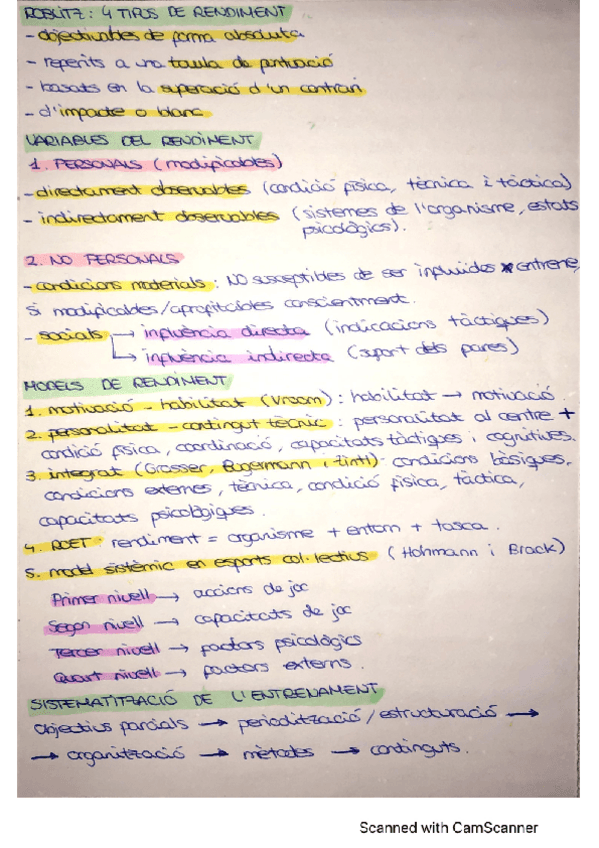 ROBLITZ: 4 TIPOS DE RENDIMENT
- objectivables de forma absoluta
- referits a una taula de puntuació
- basats en la superació d'un contrari
- d'impacte o blanc
VARIABLES DEL RENDIMENT
1. PERSONALS (modificables)
- directament observables (condició física, tècnica i tàctica)
- indirectament observables (sistemes de l'organisme, estats
psicològics).
2. NO PERSONALS
- condicions materials: NO susceptibles de ser influïdes x entrene,
si modificables/aprofitables conscientment.
- socials → influència directa (indicacions tàctiques)
↳ influència indirecta (suport dels pares)
MODELS DE RENDIMENT
1. motivació - habilitat (Vroom): habilitat → motivació
2. personalitat - contingut tècnic: personalitat al centre +
condició física, coordinació, capacitats tàctiques i cognitives.
3. integrat (Grosser, i Zintl): condicions bàsiques,
condicions externes, tècnica, condició física, tàctica,
capacitats psicològiques.
4. ROET: rendiment = organisme + entorn + tasca.
5. model sistèmic en esports col·lectius (Hohmann i Brack)
Primer nivell → accions de joc
Segon nivell → capacitats de joc
Tercer nivell → factors psicològics
Quart nivell → factors externs.
SISTEMATITZACIÓ DE L'ENTRENAMENT
Objectius parcials → periodització/estructuració →
→ organització → mètodes → continguts.
Scanned with CamScanner